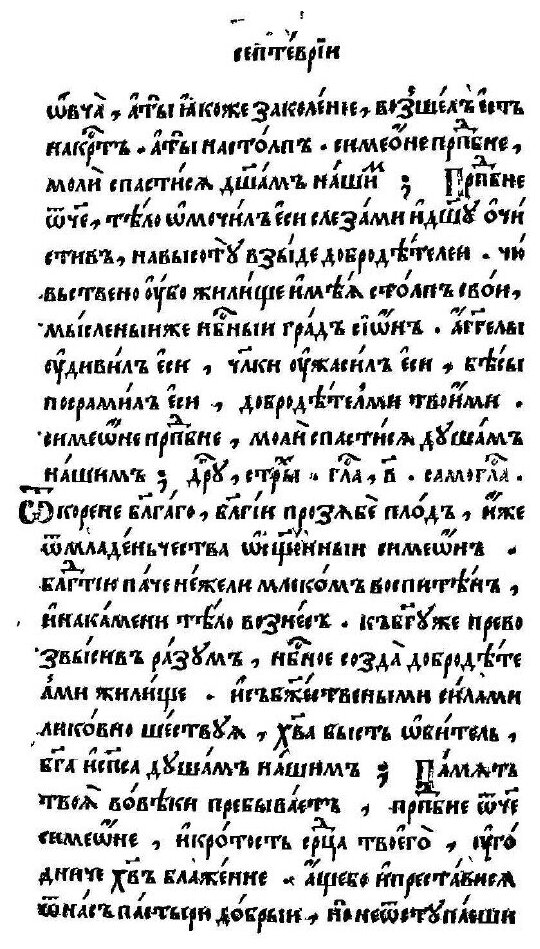 септе́врїи
ѡ҆вча̀, а҆ты̀ ꙗ҆́коже заколе́нїе, возше́лъ є҆сѝ
накрⷭ҇тъ. а҆ты̀ настолпъ. симео́не прпⷣбне,
молѝ спасти́сѧ дш҃а́мъ на́шиⷨ ; Прпⷣбне
ѿ́че, тѣ́ло ѡ҆мочи́лъ є҆сѝ слеза́ми и҆дш҃ꙋ ѡ҆чи́
стивъ, навысотꙋ̀ взы́де добродѣ́телей. чю́
вьствено ᲂу҆́бо жили́ще и҆мѣ́ѧ сто́лпъ сво́й,
мы́сленыйже нбⷭ҇ный гра́дъ сїѡ́нъ. а҆́гг҃елы
ᲂу҆диви́лъ є҆сѝ, чл҃ки ᲂу҆жаси́лъ є҆сѝ, бѣ́сы
посрами́лъ є҆сѝ, добродѣ́телѧми твои́ми.
симеѡ́не прпⷣбне, молѝ спасти́сѧ дꙋша́мъ
на́шимъ ; дрꙋ, стры̀. гла, в҃. самогла.
Ѿкорене бл҃га́го, бл҃гі́й прозѧ́бе пло́дъ, и҆́же
ѿмладе́ньчества ѡ҆сщ҃е́нный симеѡ́нъ.
бл҃гтїю па́че не́жели млеко́мъ воспитѣ́нъ,
и҆нака́мени тѣ́ло вознесъ. къбг҃ꙋже прево
звы́сивъ ра́зꙋмъ, нбⷭ҇ное созда̀ добродѣ́те
лми жили́ще. и҆събжⷭ҇твеными си́лами
ли́ковно ше́ствꙋѧ, хв҃а бысть ѡ҆би́тель,
бг҃а и҆сп҃са дꙋша́мъ на́шимъ ; Па́мѧть
твоѧ̀ во́вѣки пребыва́етъ, прпⷣбне ѿ́че
симеѡ́не, и҆кро́тость срⷣца твоегѡ̀, ᲂу҆го́
дниче хв҃ъ блаже́нне. а҆́щебо и҆преста́висѧ
ѿна́съ па́стырю до́брый, но неѿстꙋпа́еши